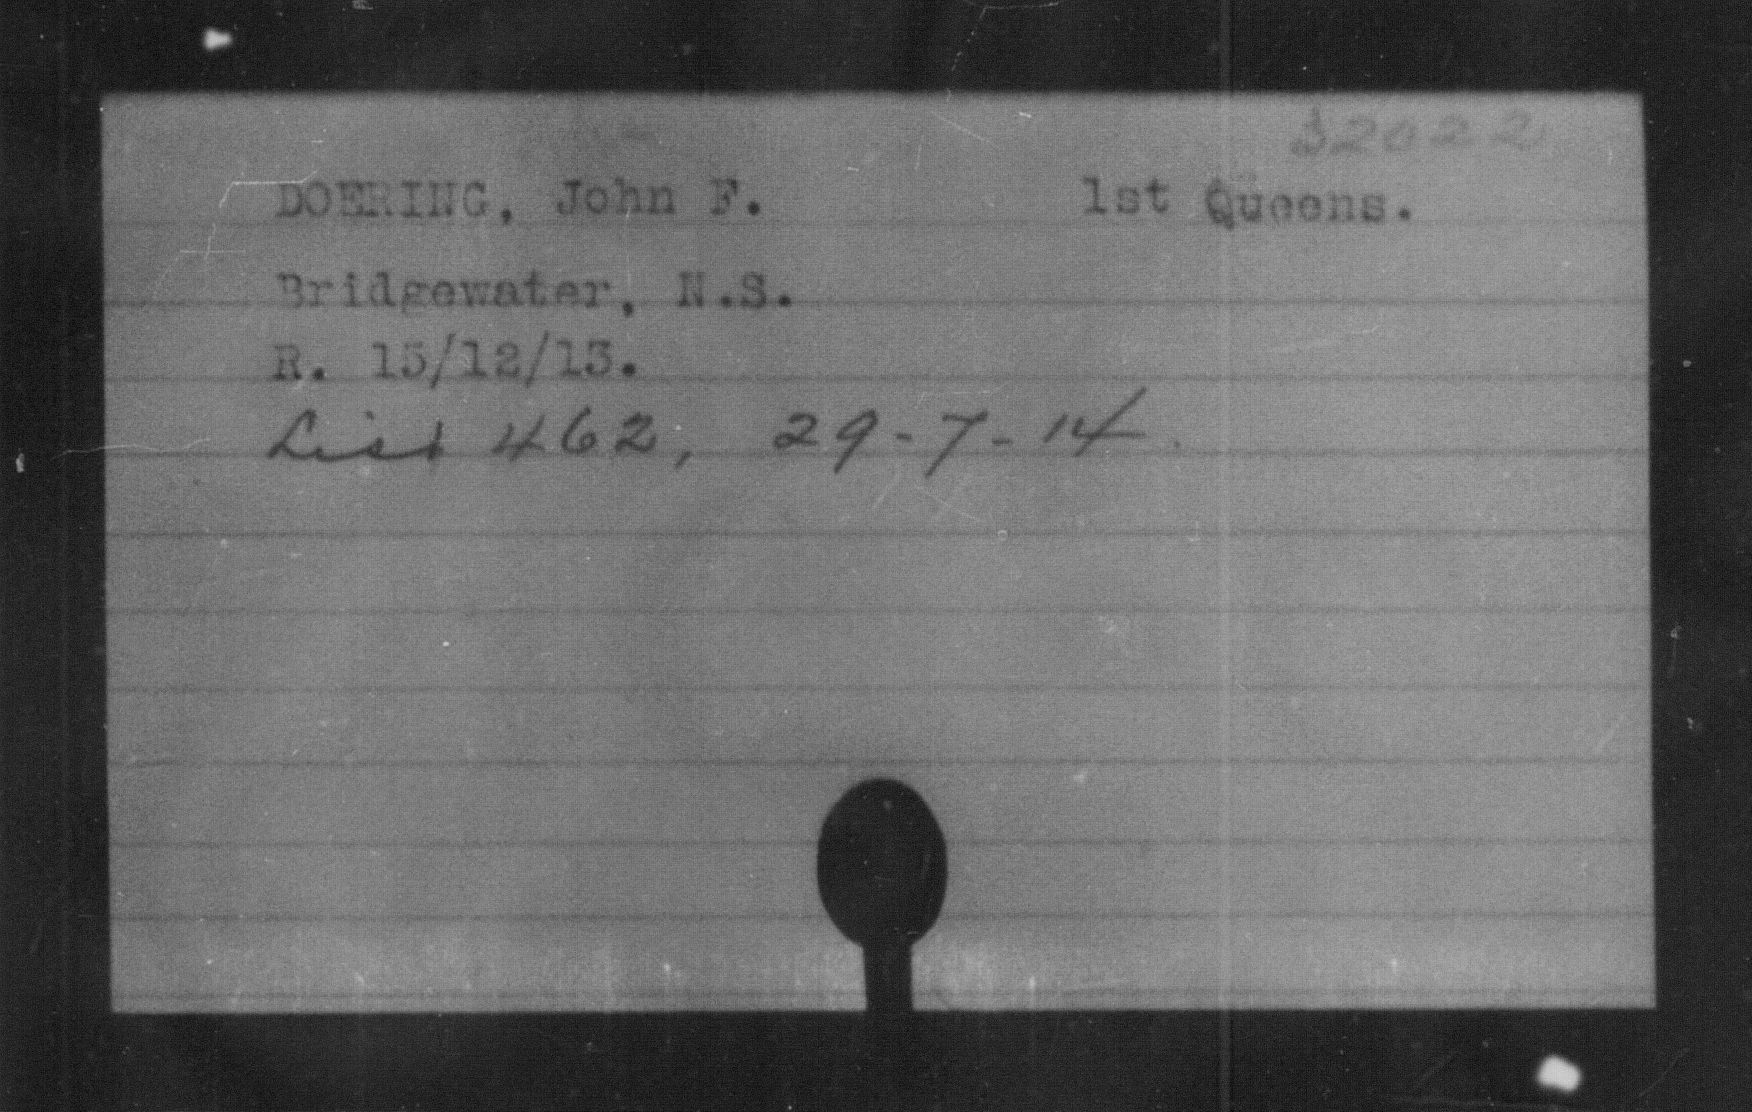 32022
DOERING, John F. 1st Queens.
Bridgewater, N.S.
R. 15/12/13.
List 462, 29-7-14.